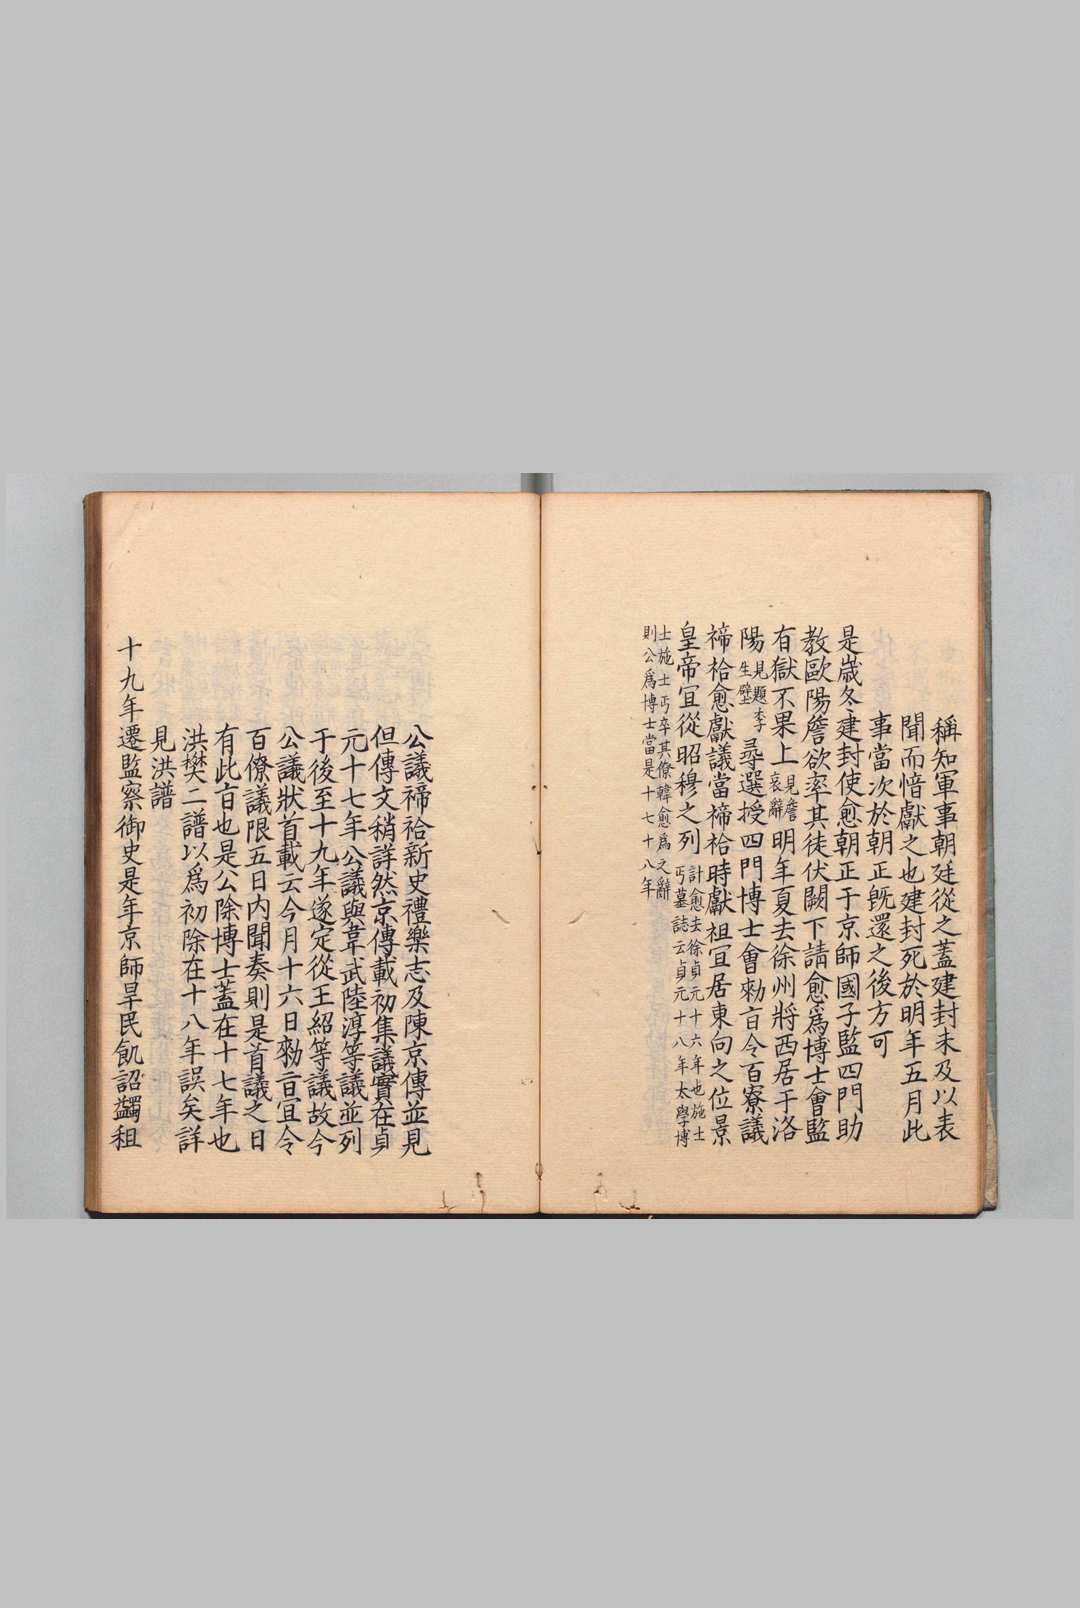 稱知軍事朝廷從之蓋建封未及以表
聞而愔獻之也建封死於明年五月此
事當次於朝正旣還之後方可
是歲冬建封使愈朝正于京師國子監四門助
教歐陽詹欲率其徒伏闕下請愈爲博士會監
有獄不果上見詹哀辭明年夏去徐州將西居于洛
陽見題李生壁尋選授四門博士會勑旨令百寮議
禘祫愈獻議當禘祫時獻祖宜居東向之位景
皇帝宜從昭穆之列計愈去徐貞元十六年也施士丐墓誌云貞元十八年太學博
士施士丐卒其僚韓愈爲之辭則公爲博士當是十七十八年
公議禘祫新史禮樂志及陳京傳並見
但傳文稍詳然京傳載初集議實在貞
元十七年公議與韋武陸淳等議並列
于後至十九年遂定從王紹等議故今
公議狀首載云今月十六日勑旨宜令
百僚議限五日內聞奏則是首議之日
有此旨也是公除博士蓋在十七年也
洪樊二譜以爲初除在十八年誤矣詳
見洪譜
十九年遷監察御史是年京師旱民飢詔蠲租